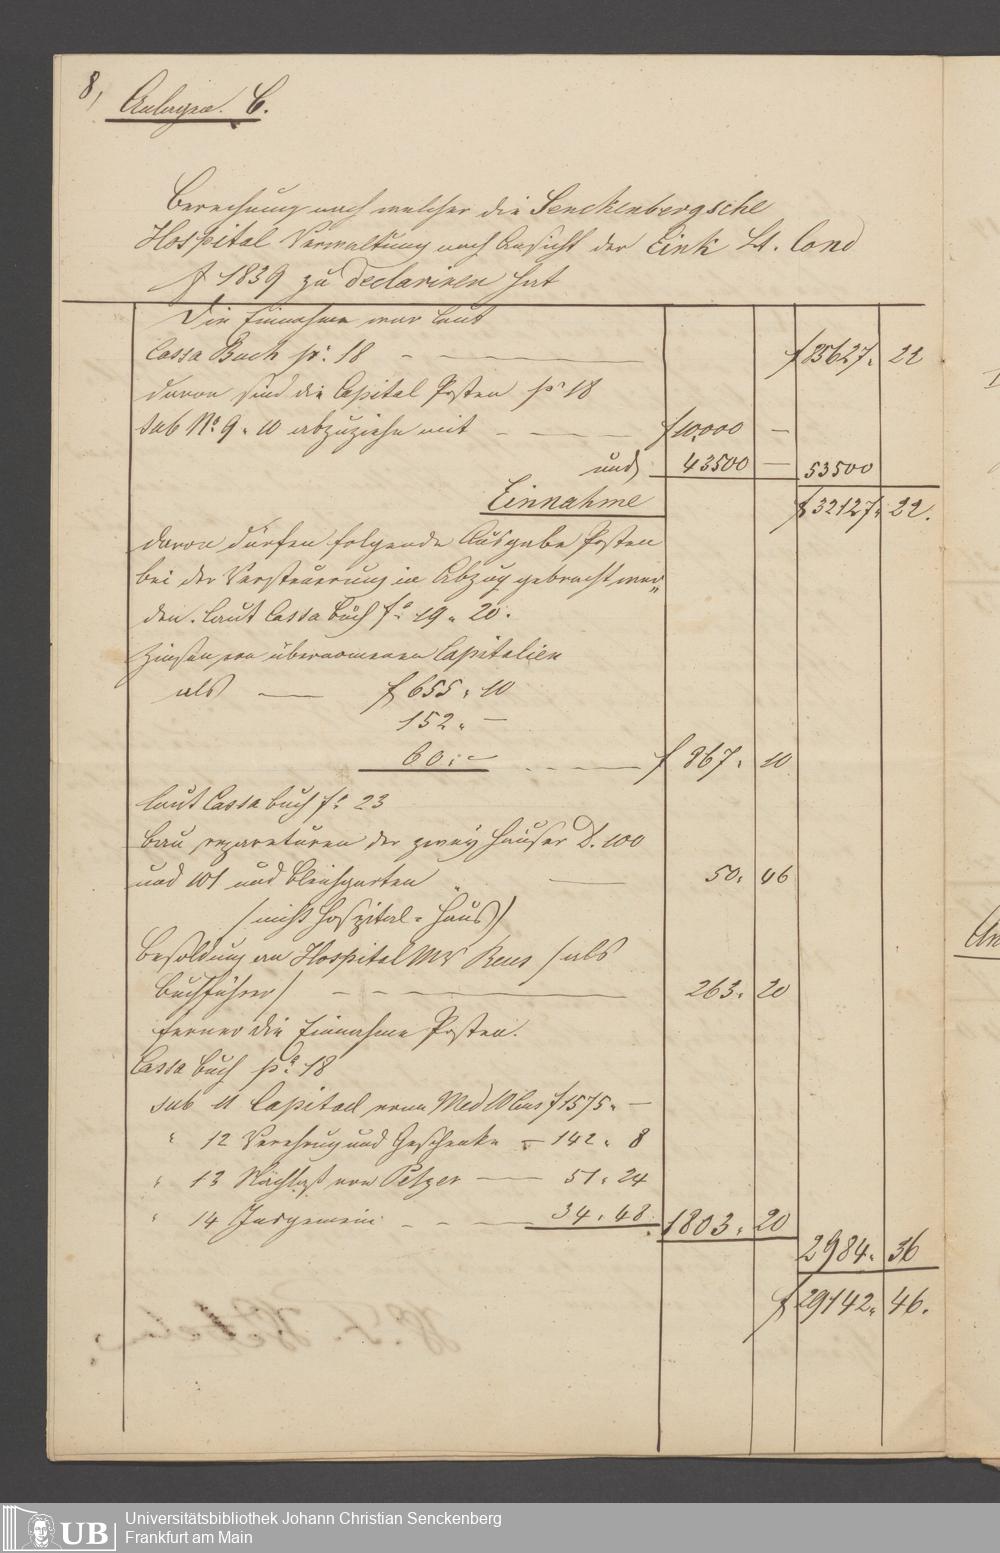 8,
Anlagen. C.
Berechnung nach welcher die Senckenbergsche
Hospital Verwaltung nach Ansicht der Eink St. Cond
f 1839 zu declariren hat
Die Einnahme war laut
Cassa Buch pa. 18 — f 85627. 22
davon sind die Capital Posten pa 18
sub No. 9. 10 abzuziehn mit — f 10,000 —
und 43500 — 53500
Einnahme f 32127. 22.
davon dürfen folgende Ausgabe Posten
bei der Versteuerung in Abzug gebracht wer„
den. laut Cassa Buch fo. 19. 20.
Zinsen von übernomenen Capitalien
als — f 655. 10
152. —
60. — f 867. 10
laut Cassa buch fo. 23
bau reparaturen der zweÿ Häuser D. 100
und 101 und Bleichgarten „ — 50. 46
/ nicht Hospital-Haus /
Besoldung an Hospital Mr Reus / als
Buchführer / — 263. 20
ferner die Einnahme Posten.
Cassa Buch pa. 18
sub 11 Capital vom Med f 1575. —
" 12 Verehrung und Geschenke — 142. 8
" 13 Nachlaß von Petzer — 51. 24
" 14 Insgemein — 34. 48. 1803. 20
2984. 36
f 29142. 46.
UB
Universitätsbibliothek Johann Christian Senckenberg
Frankfurt am Main